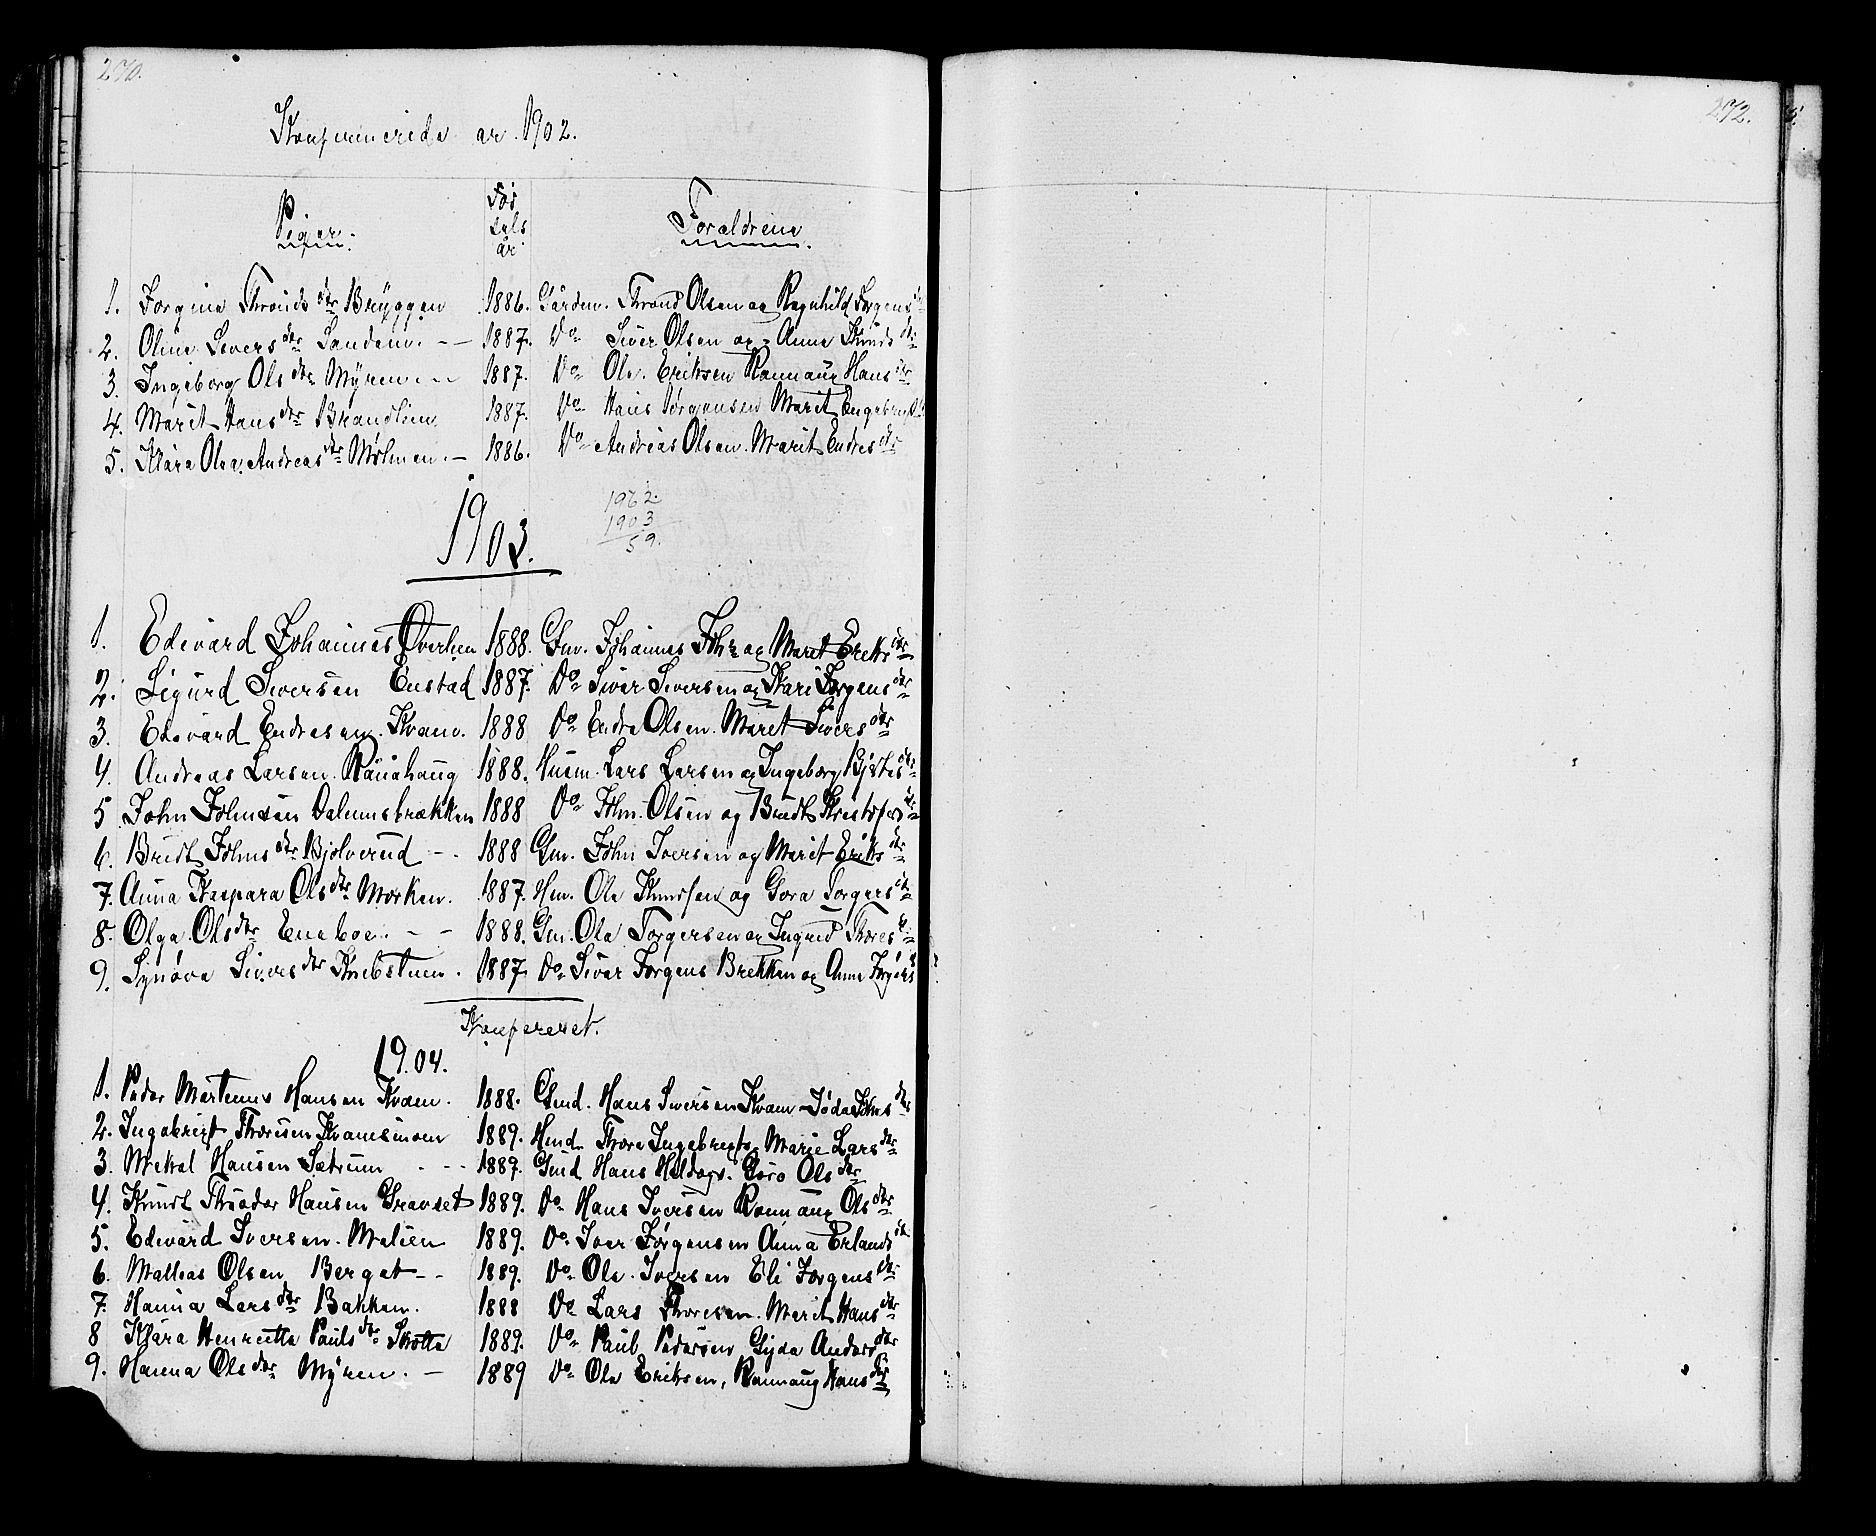 270.
272.
Konfirmerede ar. 1902.
Piger. Fød sels år Forældrene
1. Jørgine Thronds dtr Bryggen 1886. Gårdm. Thrond Olsen og Ragnhild Jørgens
2. Oline Sivers dtr Sandem. - - 1887. Do Siver Olsen og Anne Knuds dtr
3. Ingeborg Ols dtr Myren. - - 1887. Do Ole. Eriksen Rannaug Hans dtr
4. Marit Hans dtr Brandlien 1887. Do Hans Jørgensen Marit Engebregt
5. Klara Olea. Andreas dtr Mølmen. - 1886. Do Andreas Olsen. Marit Endres dtr
1903.
1962.
1903
59.
1. Edevard Johannes Øverlien 1888. Gm. Johannes Joh og Maret Ereks dtr
2. Sigurd Siversen Enstad 1887. Do Siver Siversen og Kari Jørgens dtr
3. Edevard Endresen. Kvam. 1888 Do Endre Olsen. Maret Sivers dtr
4. Andreas Larsen. Rånåhaug 1888. Husm. Lars Larsen og Ingeborg
5 John Johnsen Dalumsbrækken 1888 Do John. Olsen og Bredt Kristofers
6. Bredt Johns dtr Bjølverud - . 1888 Gm. John Iversen og Marit Eriks dtr
7. Anna Kaspara Ols dtr Morken. 1887. Hm. Ole Knudsen og Gora Torgers
8. Olga. Ols dtr Eneboe. - - 1888. Gm. Ole Torgersen og Ingred Thores
9. Synøve Sivers dtr 1887 Do Siver Jørgens Brekken og Anne
Konfereret.
19.04.
1. Peder Martenus Hansen Kvam. 1888. Gmd. Hans Siversen Kvam Johns dtr
2. Ingebrigt Thoresen Kvamsmoen 1889. Hmd. Thore Ingebregts Marie Lars dtr
3. Mekal Hansen Sætrum - - - 1889. Gmd Hans Goro Ols dtr
4. Knudt Theodor Hansen Gravset 1889. Do Hans Iversen Rannaug Ols dtr
5. Edevard Iversen. Melien 1889. Do. Iver Jørgensen Anna Erlands dtr
6. Mathias Olsen Berget - - 1889. Do Ole. Iversen Eli Jørgens dtr
7. Hanna Lars dtr Bakken. 1888 Do Lars Thoresen. Marit Hans dtr
8 Klara Henrette Pauls dtr Skotte 1889. Do Paul Pedersen Gyda Anders dtr
9. Hanna Ols dtr Myren. - 1889 Do Ole Eriksen, Rannaug Hans dtr